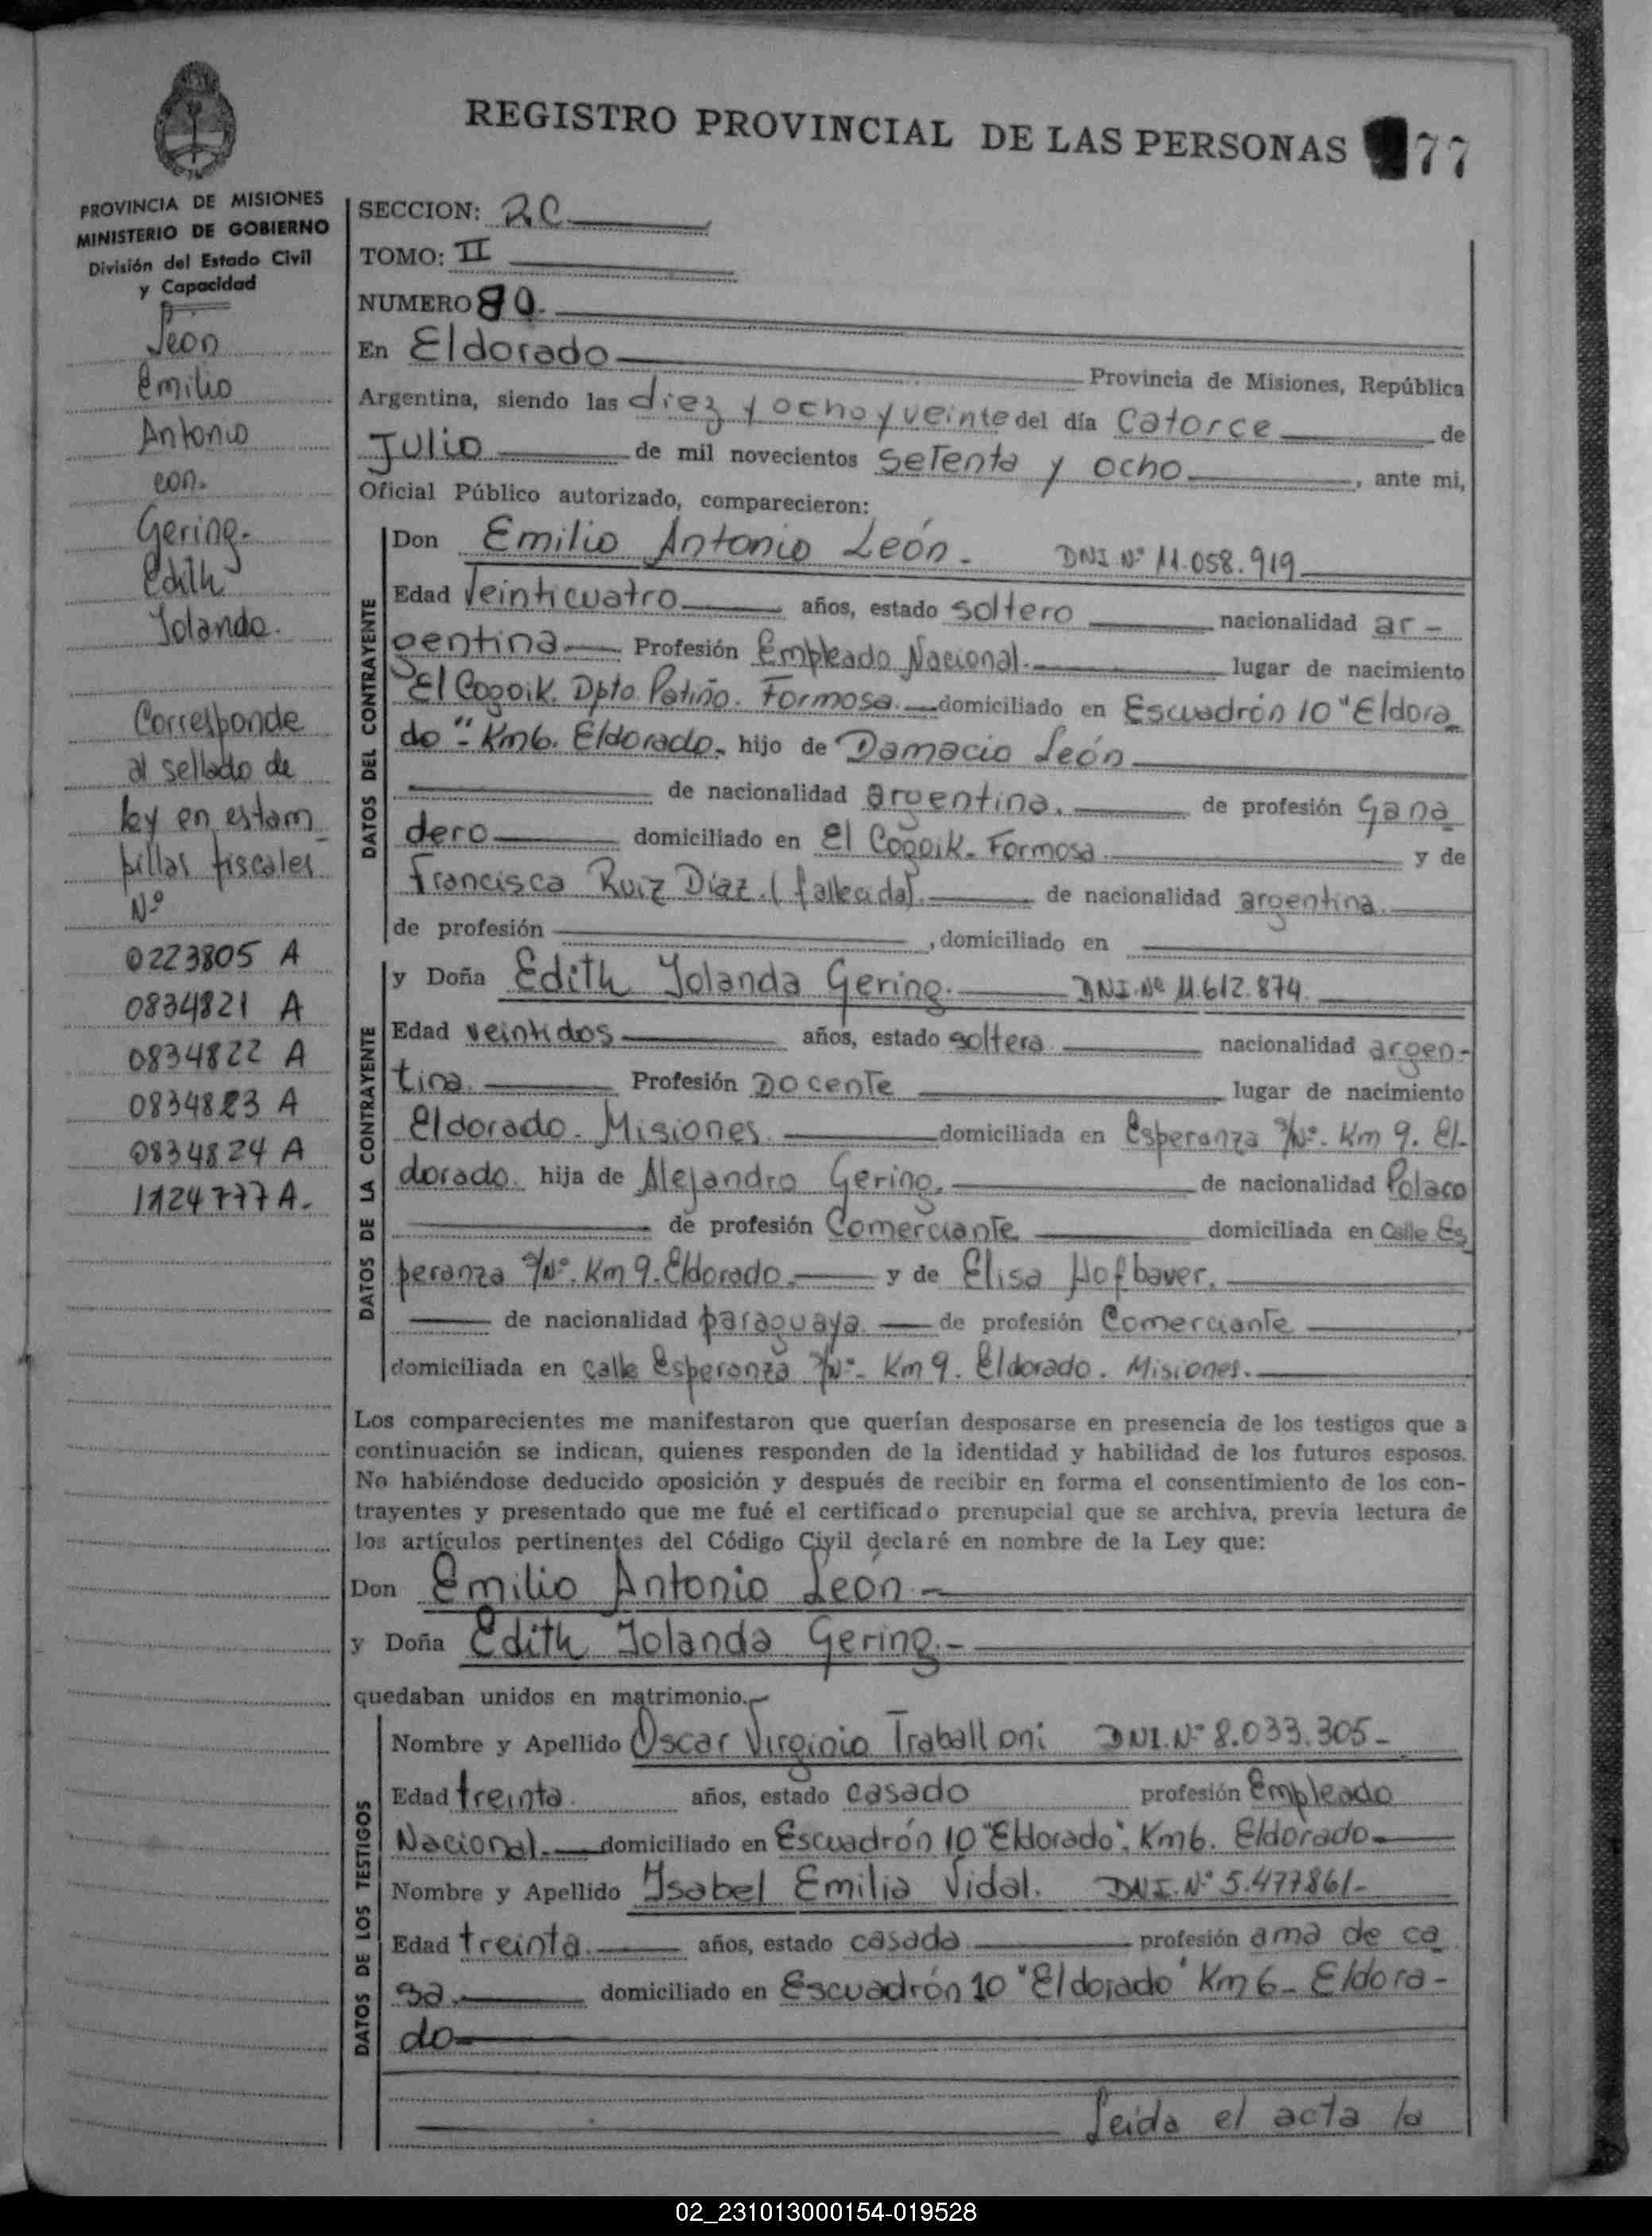 REGISTRO PROVINCIAL DE LAS PERSONAS 77
PROVINCIA DE MISIONES
MINISTERIO DE GOBIERNO
División del Estado Civil
y Capacidad
Leon
Emilio
Antonio
con.
Gering.
Edith
Yolanda.
Corresponde
al sellado de
ley en estam
pillas fiscales
Nº
0223805 A
0834821 A
0834822 A
0834823 A
0834824 A
1124777 A.
SECCION: 2C
TOMO: II
NUMERO 80.
En Eldorado Provincia de Misiones, República
Argentina, siendo las diez y ocho y veinte del día Catorce de
Julio de mil novecientos setenta y ocho, ante mi,
Oficial Público autorizado, comparecieron:
DATOS DEL CONTRAYENTE
Don Emilio Antonio León. DNI Nº 11.058.919
Edad Veinticuatro años, estado soltero nacionalidad ar-
gentina Profesión Empleado Nacional. lugar de nacimiento
El Cogoik. Dpto. Patiño. Formosa. domiciliado en Escuadrón 10 "Eldora
do". Km6. Eldorado. hijo de Damacio León
de nacionalidad argentina. de profesión Gana
dero domiciliado en El Cogoik. Formosa y de
Francisca Ruiz Díaz. (fallecida). de nacionalidad argentina.
de profesión , domiciliado en
DATOS DE LA CONTRAYENTE
y Doña Edith Yolanda Gering. DNI. Nº 11.612.874.
Edad veintidos años, estado soltera nacionalidad argen-
tina. Profesión Docente lugar de nacimiento
Eldorado. Misiones. domiciliada en Esperanza s/Nº. Km 9. El-
dorado. hija de Alejandro Gering. de nacionalidad Polaco
de profesión Comerciante domiciliada en Calle Es
peranza s/Nº. Km 9. Eldorado. y de Elisa Hofbaver.
de nacionalidad paraguaya. de profesión Comerciante
domiciliada en calle Esperanza s/Nº. Km 9. Eldorado. Misiones.
Los comparecientes me manifestaron que querían desposarse en presencia de los testigos que a
continuación se indican, quienes responden de la identidad y habilidad de los futuros esposos.
No habiéndose deducido oposición y después de recibir en forma el consentimiento de los con-
trayentes y presentado que me fué el certificado prenupcial que se archiva, previa lectura de
los artículos pertinentes del Código Civil declaré en nombre de la Ley que:
Don Emilio Antonio León.-
y Doña Edith Yolanda Gering.-
quedaban unidos en matrimonio.
DATOS DE LOS TESTIGOS
Nombre y Apellido Oscar Virginio Traballoni DNI. Nº 8.033.305-
Edad treinta. años, estado casado profesión Empleado
Nacional. domiciliado en Escuadrón 10 "Eldorado". Km6. Eldorado.
Nombre y Apellido Ysabel Emilia Vidal. DNI. Nº 5.477861-
Edad treinta. años, estado casada profesión ama de ca
sa. domiciliado en Escuadrón 10 "Eldorado" Km 6- Eldora-
do
Leida el acta la
02_231013000154-019528